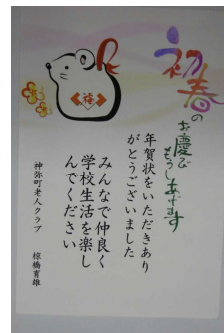 初春の
お慶び
もうしあげます
年賀状をいただきあり
がとうございました
みんなで仲良く
学校生活を楽し
んでください
神弥町老人クラブ
椋橋育雄
福